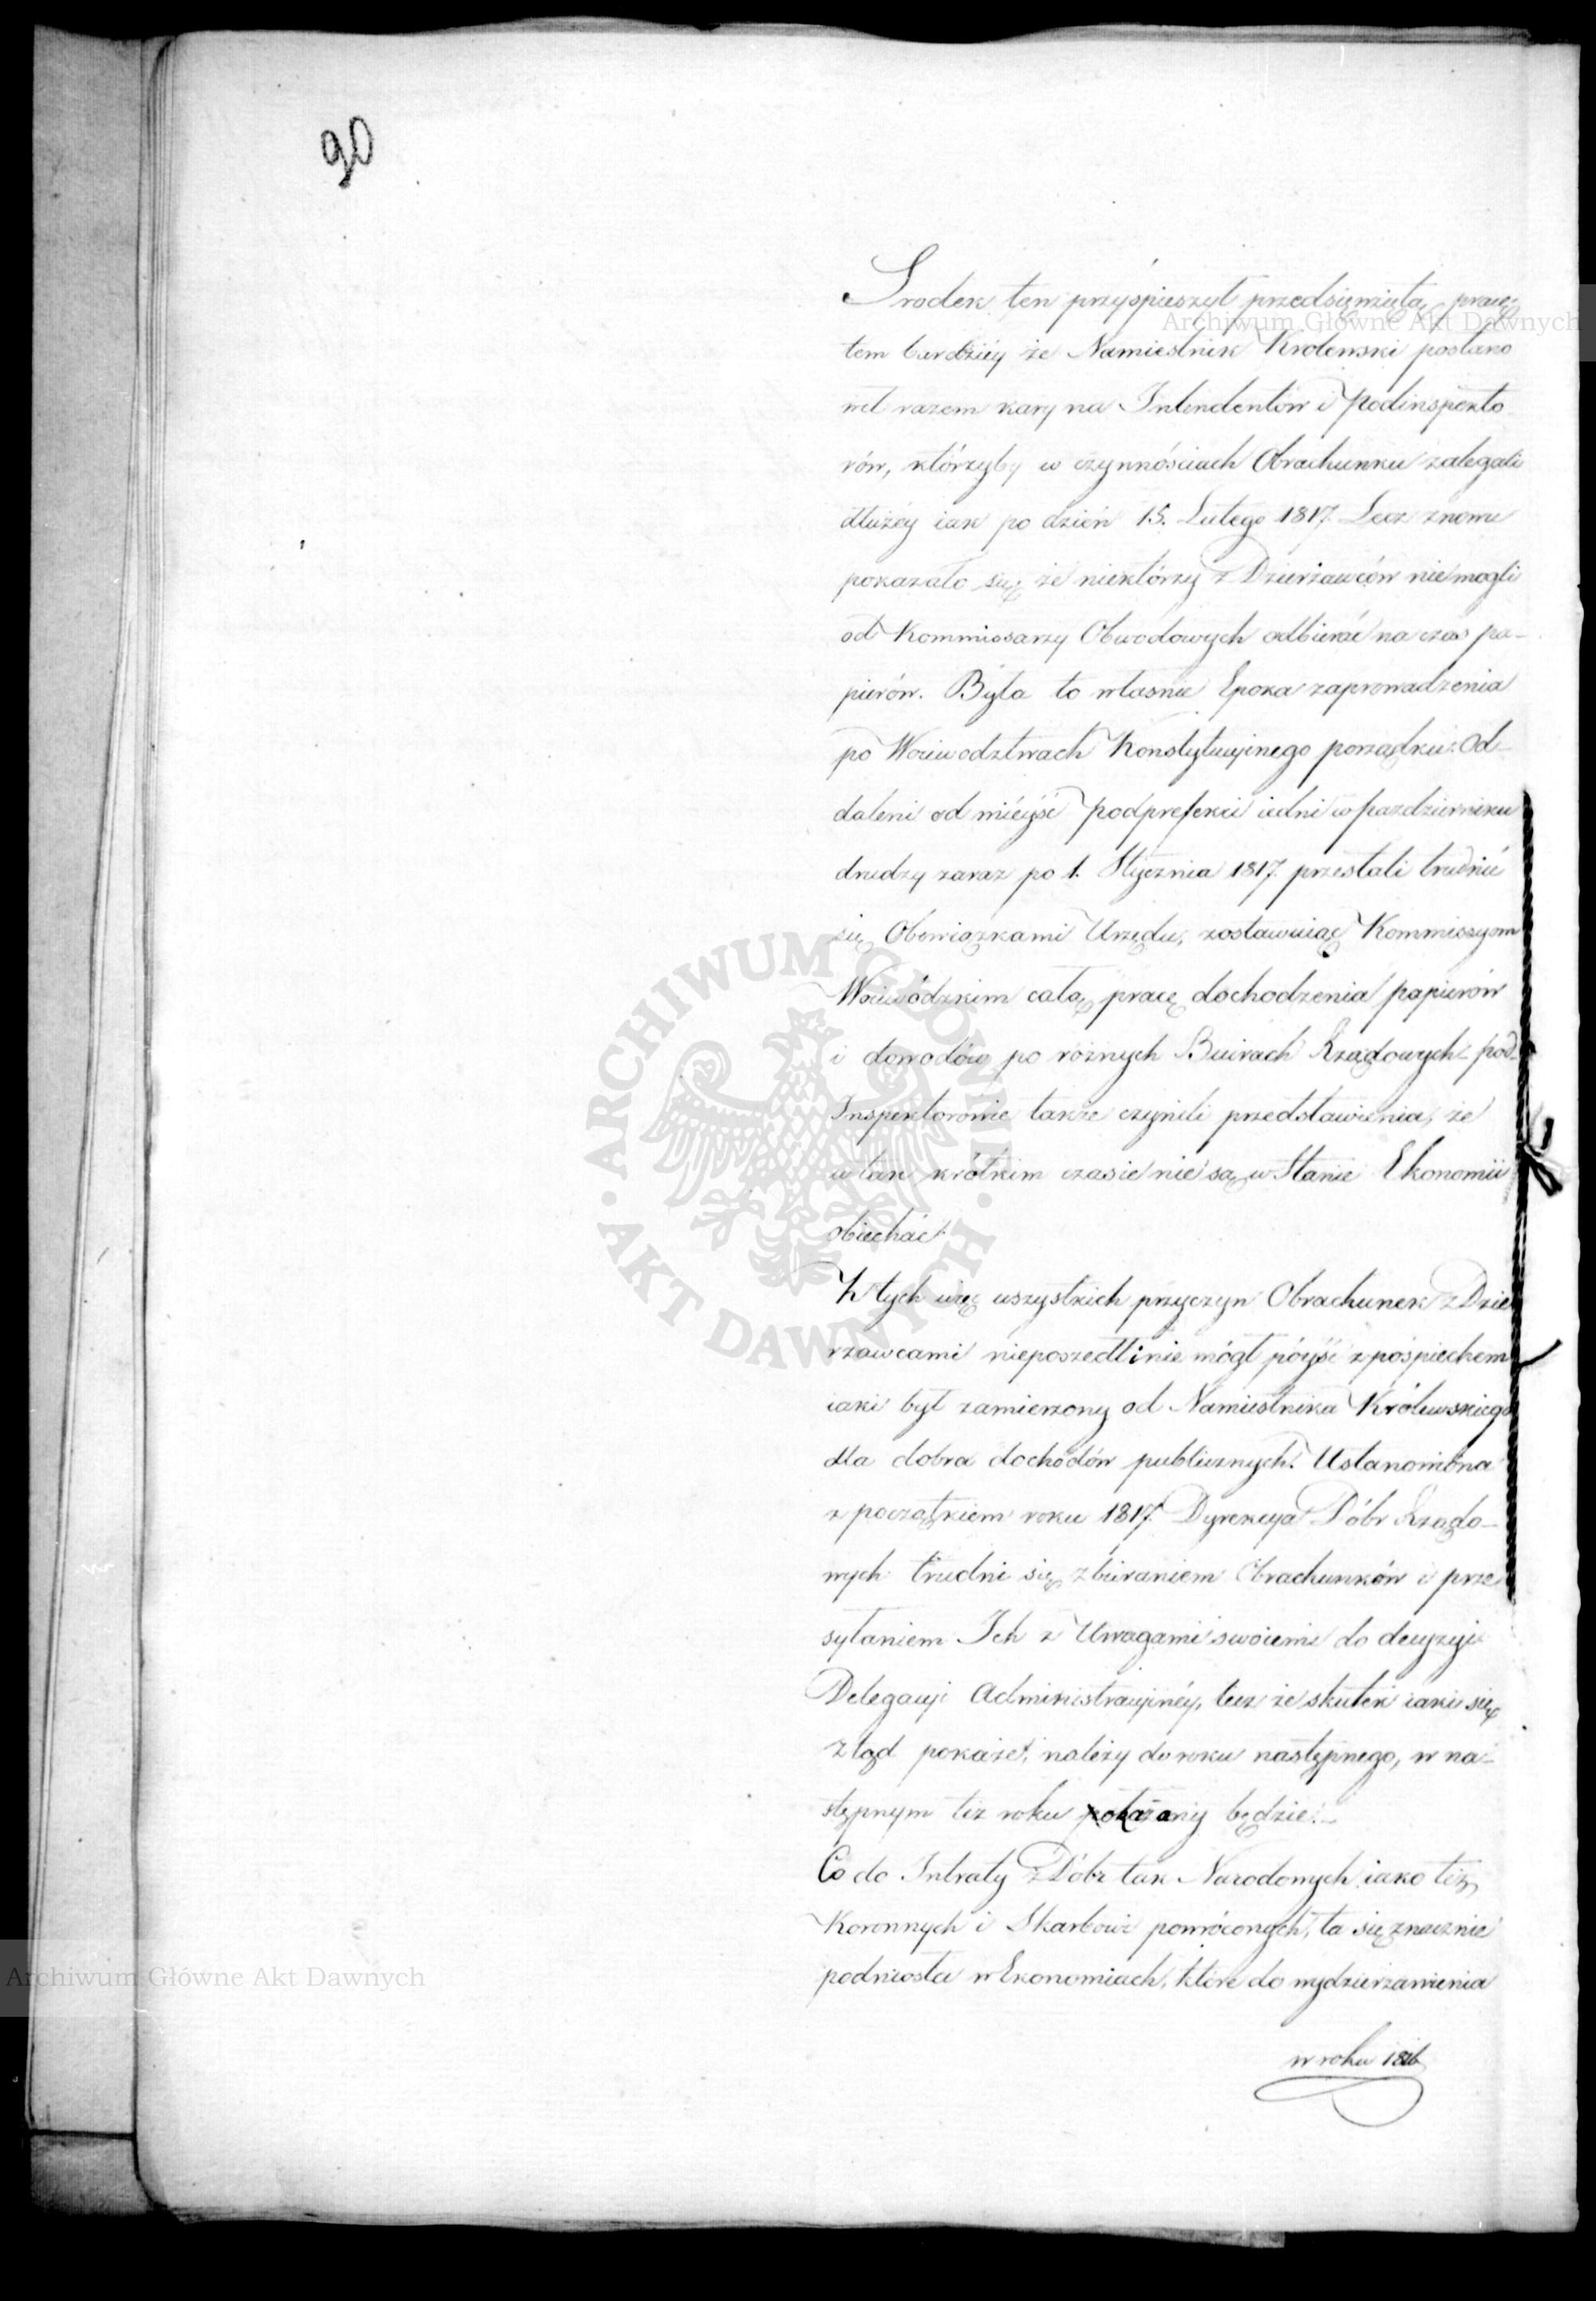 90
Srodek ten przyśpieszył przedsięwziętą pracę
Archiwum Główne Akt Dawnych
tem bardziéy że Namiestnik Krolewski postano
wił razem kary na Intendentów i Podinspekto
rów, którzyby w czynnościach Obrachunku zalegali
dłużéy iak po dzień 15. Lutego 1817. Lecz znowu
pokazało się że niektórzy z Dzierżawców niemogli
od Kommissarzy Obwodowych odbierać na czas pa-
pierów. Była to własnie Epoka zaprowadzenia
po Woiewodztwach Konstytucyinego porządku. Od-
daleni od mieysc podprefekci iedni w Pazdzierniku
drudzy zaraz po 1. Stycznia 1817. przestali trudnić
się Obowiązkami Urzędu, zostawuiąc Kommissyom
Woiewódzkim całą pracę dochodzenia papierów
i dowodów po róznych Biurach Rządowych - pod-
Inspektorowie także czynili przedstawienia, że
w tak krótkim czasie nie są w Stanie Ekonomii
obiechać.
Z tych więc wszystkich przyczyn Obrachunek z Dzie
rzawcami nieposzedł i nie mógł póyść z pośpiechem
iaki był zamierzony od Namiestnika Królewskiego
dla dobra dochodów publicznych. Ustanowiona
z początkiem roku 1817. Dyrekcya Dóbr Rządo-
wych trudni się zbieraniem Obrachunków i prze
syłaniem Ich z Uwagami swoiemi do decyzyi
Delegacyi Administracyinéy, lecz że skutek iaki się
z tąd pokaże, należy do roku następnego, w na-
stępnym też roku okazany będzie. -
Co do Intraty z Dóbr tak Narodowych iako też
Koronnych i Skarbowi powróconych, ta się znacznie
podniosła w Ekonomiach, które do wydzierzawienia
w roku 1816
ARCHIWUM GŁÓWNE · AKT DAWNYCH ·
Archiwum Główne Akt Dawnych